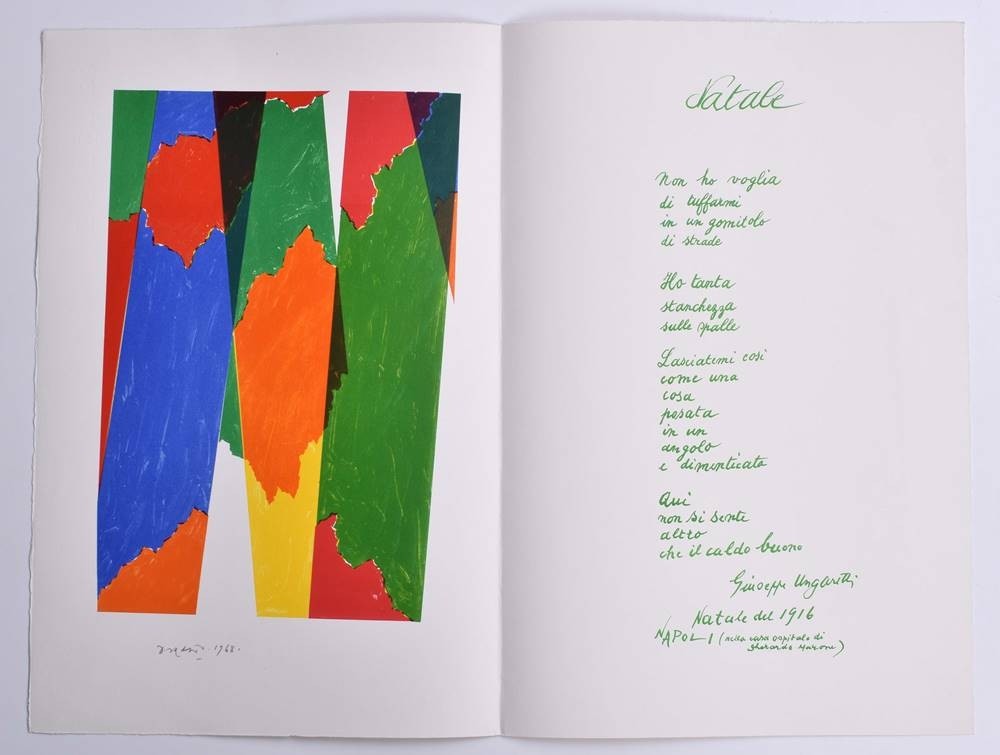 Natale
Non ho voglia
di tuffarmi
in un gomitolo
di strade
Ho tanta
stanchezza
sulle spalle
Lasciatemi così
come una
cosa
posata
in un
angolo
e dimenticata
Qui
non si sente
altro
che il caldo buono
Giuseppe Ungaretti
Natale del 1916
NAPOLI (nella casa ospitale di
Gherardo Marone)
1968.